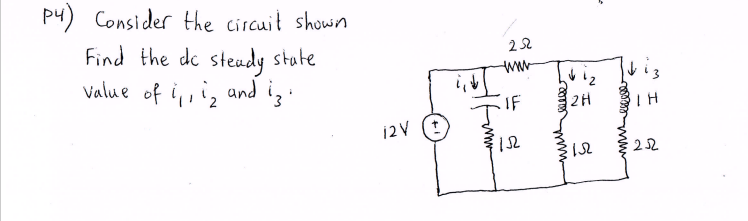 P4) Consider the circuit shown
Find the dc steady state
value of i₁, i₂ and i₃.
2Ω
i₁
i₂
i₃
1F
2H
1H
12V
+
-
1Ω
1Ω
2Ω